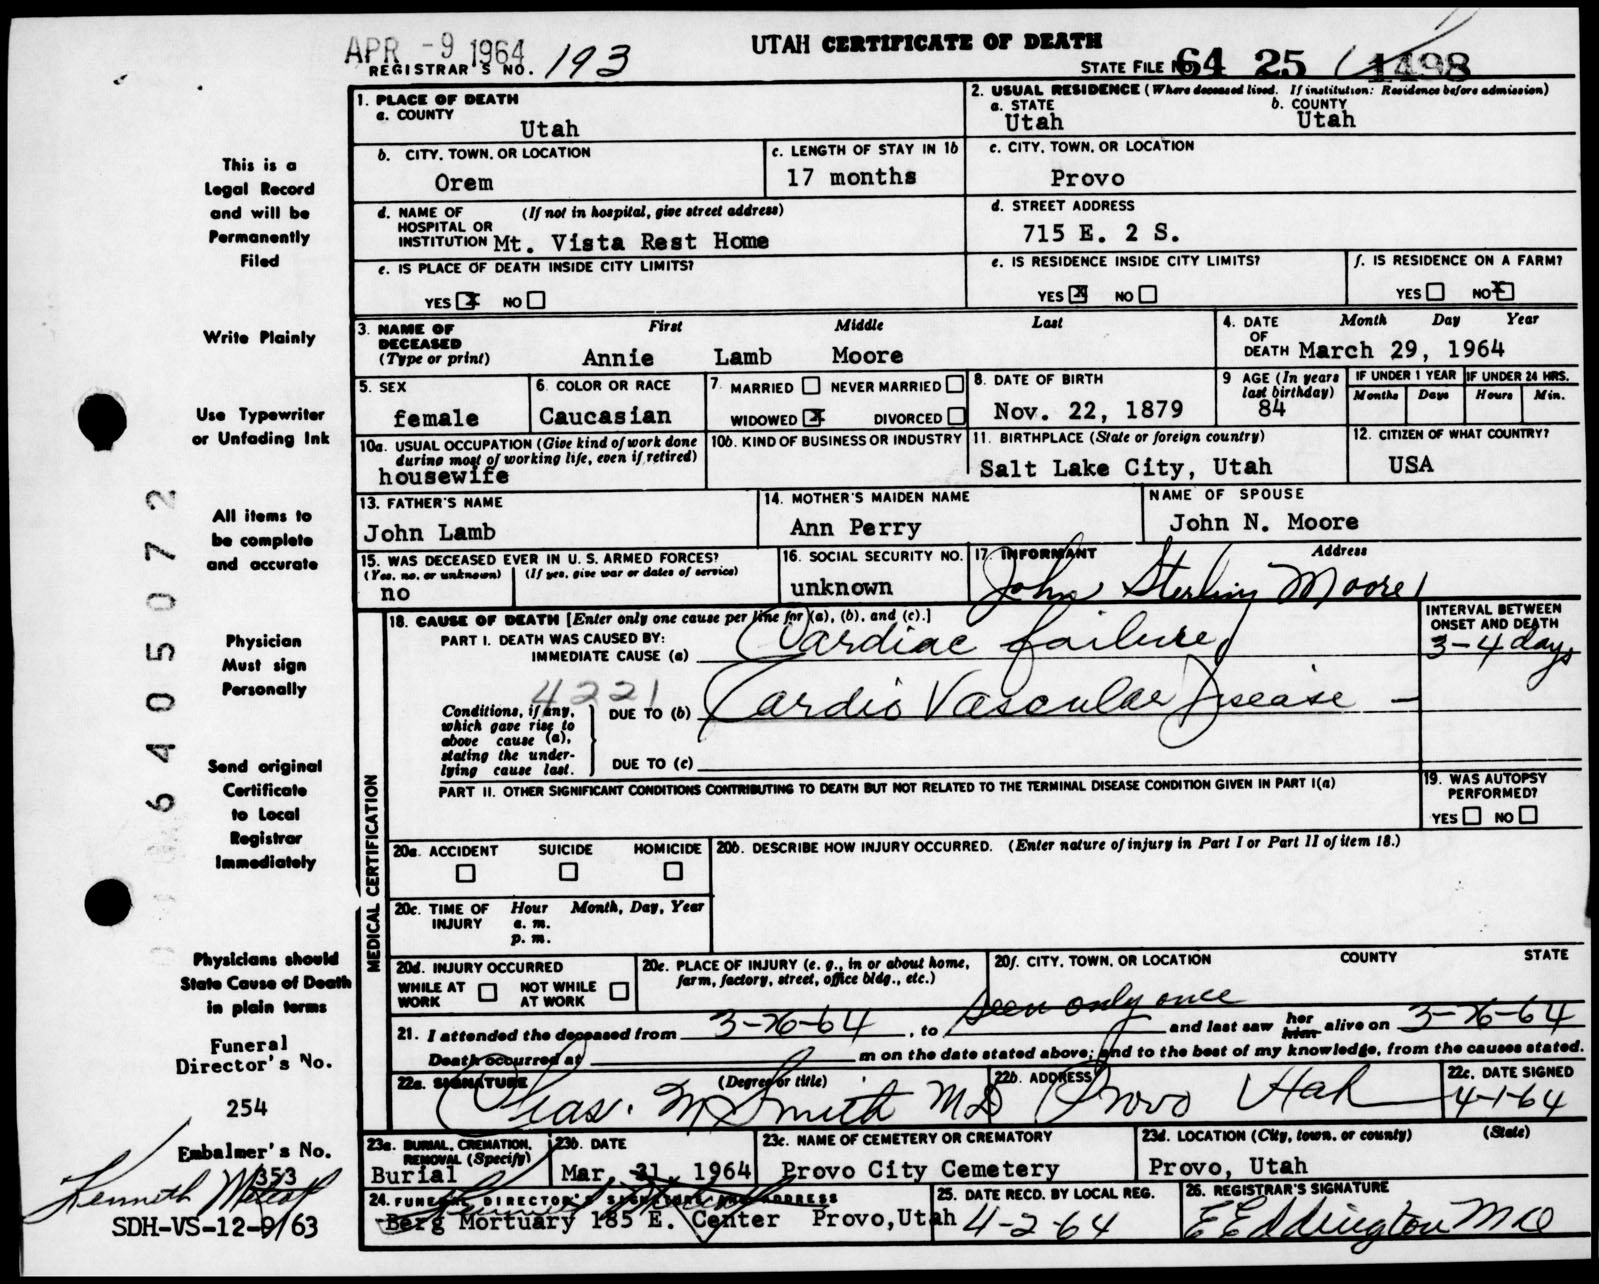 APR -9 1964
REGISTRAR'S NO. 193
UTAH CERTIFICATE OF DEATH
STATE FILE NO. 64 25 1498
1. PLACE OF DEATH
a. COUNTY
Utah
2. USUAL RESIDENCE (Where deceased lived. If institution: Residence before admission)
a. STATE b. COUNTY
Utah Utah
b. CITY, TOWN, OR LOCATION
Orem
c. LENGTH OF STAY IN 1b
17 months
c. CITY, TOWN, OR LOCATION
Provo
d. NAME OF HOSPITAL OR INSTITUTION (If not in hospital, give street address)
Mt. Vista Rest Home
d. STREET ADDRESS
715 E. 2 S.
e. IS PLACE OF DEATH INSIDE CITY LIMITS?
YES X NO
e. IS RESIDENCE INSIDE CITY LIMITS?
YES X NO
f. IS RESIDENCE ON A FARM?
YES NO X
3. NAME OF DECEASED (Type or print)
First Middle Last
Annie Lamb Moore
4. DATE OF DEATH Month Day Year
March 29, 1964
5. SEX
female
6. COLOR OR RACE
Caucasian
7. MARRIED NEVER MARRIED
WIDOWED X DIVORCED
8. DATE OF BIRTH
Nov. 22, 1879
9 AGE (In years last birthday)
84
IF UNDER 1 YEAR IF UNDER 24 HRS.
Months Days Hours Min.
10a. USUAL OCCUPATION (Give kind of work done during most of working life, even if retired)
housewife
10b. KIND OF BUSINESS OR INDUSTRY
11. BIRTHPLACE (State or foreign country)
Salt Lake City, Utah
12. CITIZEN OF WHAT COUNTRY?
USA
13. FATHER'S NAME
John Lamb
14. MOTHER'S MAIDEN NAME
Ann Perry
NAME OF SPOUSE
John N. Moore
15. WAS DECEASED EVER IN U. S. ARMED FORCES?
(Yes, no, or unknown) (If yes, give war or dates of service)
no
16. SOCIAL SECURITY NO.
unknown
17. INFORMANT Address
John Sterling Moore
18. CAUSE OF DEATH [Enter only one cause per line for (a), (b), and (c).]
PART I. DEATH WAS CAUSED BY:
IMMEDIATE CAUSE (a) Cardiac failure
INTERVAL BETWEEN ONSET AND DEATH
3-4 days
4221
Conditions, if any, which gave rise to above cause (a), stating the underlying cause last.
DUE TO (b) Cardio Vascular Disease -
DUE TO (c)
PART II. OTHER SIGNIFICANT CONDITIONS CONTRIBUTING TO DEATH BUT NOT RELATED TO THE TERMINAL DISEASE CONDITION GIVEN IN PART I(a)
19. WAS AUTOPSY PERFORMED?
YES NO
MEDICAL CERTIFICATION
20a. ACCIDENT SUICIDE HOMICIDE
20b. DESCRIBE HOW INJURY OCCURRED. (Enter nature of injury in Part I or Part II of item 18.)
20c. TIME OF INJURY Hour Month, Day, Year
a. m.
p. m.
20d. INJURY OCCURRED
WHILE AT WORK NOT WHILE AT WORK
20e. PLACE OF INJURY (e. g., in or about home, farm, factory, street, office bldg., etc.)
20f. CITY, TOWN, OR LOCATION COUNTY STATE
21. I attended the deceased from 3-26-64, to seen only once and last saw her him alive on 3-26-64
Death occurred at m on the date stated above; and to the best of my knowledge, from the causes stated.
22a. SIGNATURE (Degree or title)
Chas. M Smith MD
22b. ADDRESS
Provo Utah
22c. DATE SIGNED
4-1-64
23a. BURIAL, CREMATION, REMOVAL (Specify)
Burial
23b. DATE
Mar. 31, 1964
23c. NAME OF CEMETERY OR CREMATORY
Provo City Cemetery
23d. LOCATION (City, town, or county) (State)
Provo, Utah
24. FUNERAL DIRECTOR'S SIGNATURE AND ADDRESS
Berg Mortuary 185 E. Center Provo, Utah
25. DATE RECD. BY LOCAL REG.
4-2-64
26. REGISTRAR'S SIGNATURE
E Eddington MD
This is a
Legal Record
and will be
Permanently
Filed
Write Plainly
Use Typewriter
or Unfading Ink
All items to
be complete
and accurate
Physician
Must sign
Personally
Send original
Certificate
to Local
Registrar
Immediately
Physicians should
State Cause of Death
in plain terms
Funeral
Director's No.
254
Embalmer's No.
353
Kenneth
SDH-VS-12-9/63
6405072